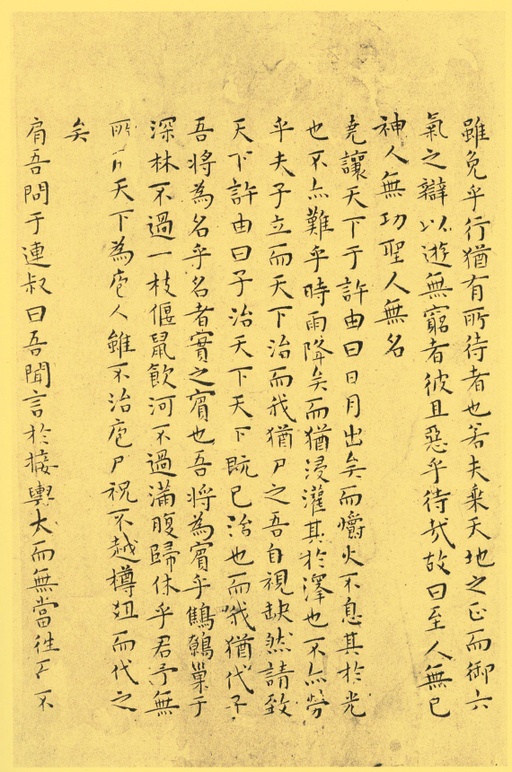 雖免乎行猶有所待者也若夫乗天地之正而御六
氣之辯以遊無窮者彼且惡乎待哉故曰至人無已
神人無功聖人無名
堯讓天下于許由曰日月出矣而爝火不息其於光
也不亦難乎時雨降矣而猶浸灌其於澤也不亦勞
乎夫子立而天下治而我猶尸之吾自視缺然請致
天下許由曰子治天下天下既已治也而我猶代子
吾將為名乎名者實之賓也吾將為賓乎鷦鷯巢于
深林不過一枝偃鼠飲河不過滿腹歸休乎君予無
所 天下為庖人雖不治庖尸祝不越樽俎而代之
矣
肩吾問于連叔曰吾聞言於接輿大而無當徃而不